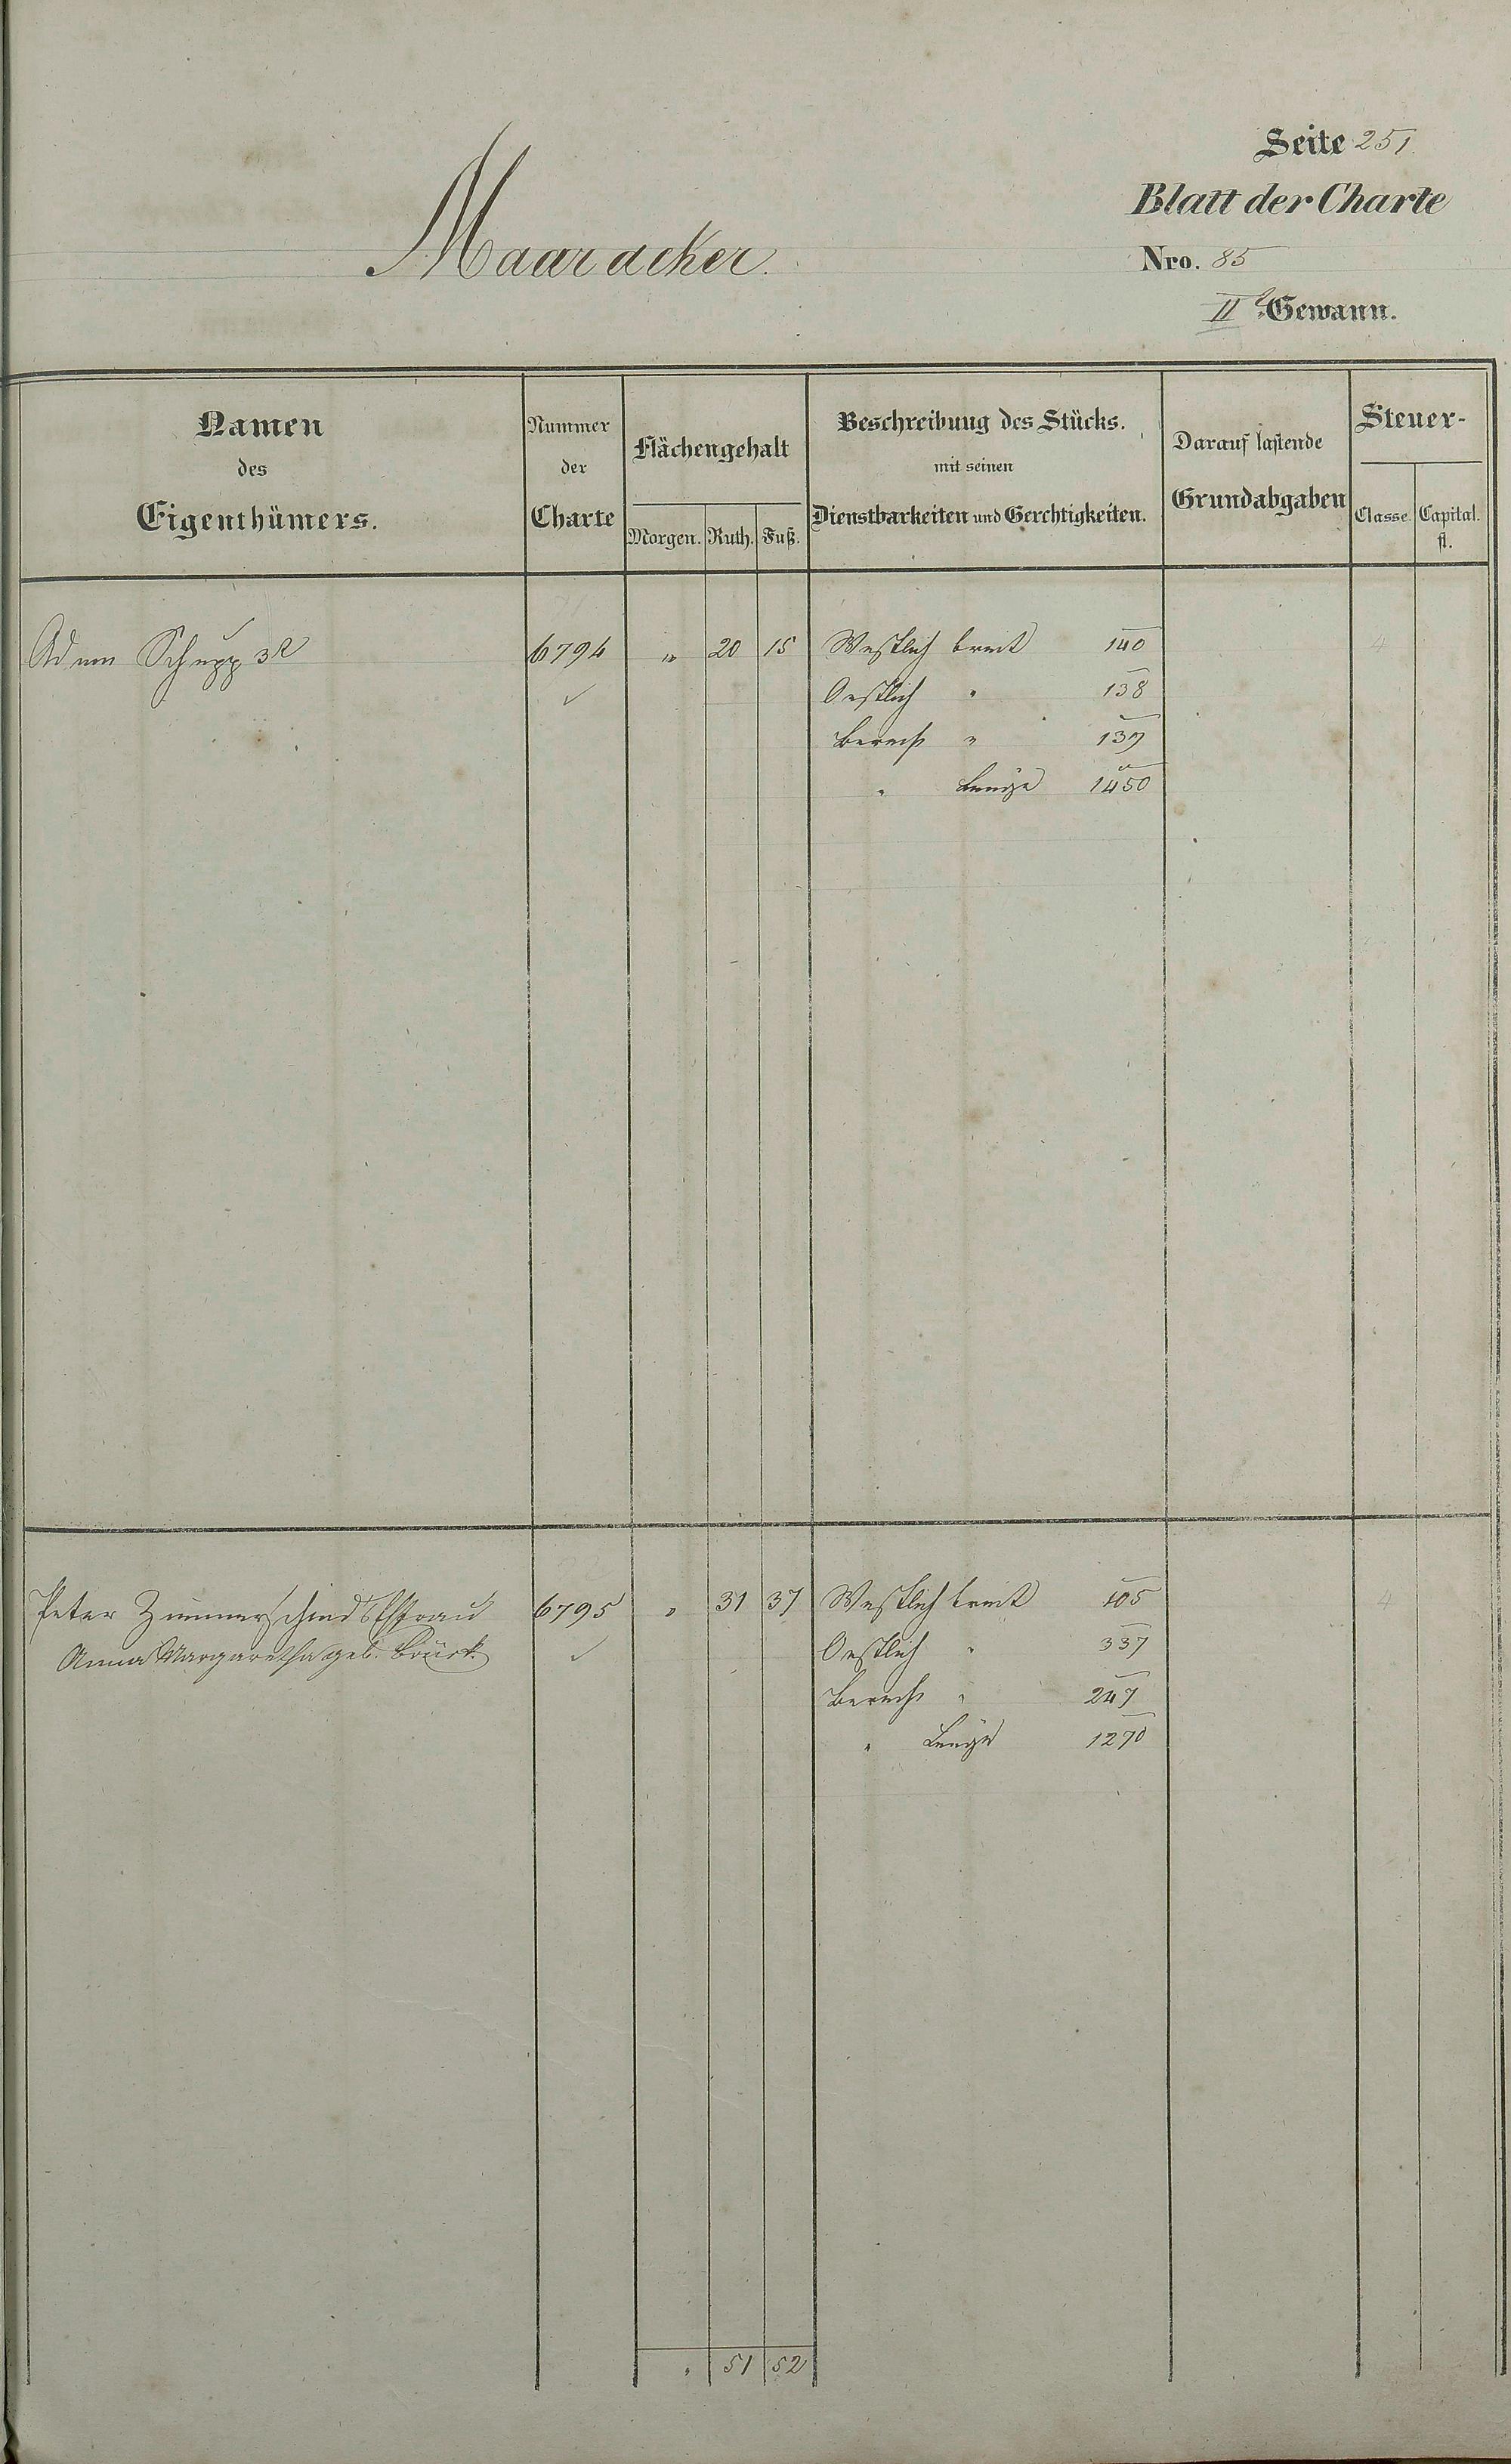 Seite 251.
Blatt der Charte
Maaracker.
Nro. 85
II Gewann.
Namen
des
Eigenthümers.
Nummer
der
Charte
Flächengehalt
Morgen. Ruth. Fuß.
Beschreibung des Stücks.
mit seinen
Dienstbarkeiten und Gerechtigkeiten.
Darauf lastende
Grundabgaben
Steuer-
Classe. Capital.
fl.
Adam Schupp 3r 6794 " 20 15 Westlich breit 140 4
✓ Oestlich " 138
Berech " 139
" Länge 1450
Peter Zimmerschied Ehfrau 6795 " 31 37 Westlich breit 105 4
Anna Margaretha geb. Brück ✓ Oestlich " 337
Berech " 247
" Länge 1270
" 51 52